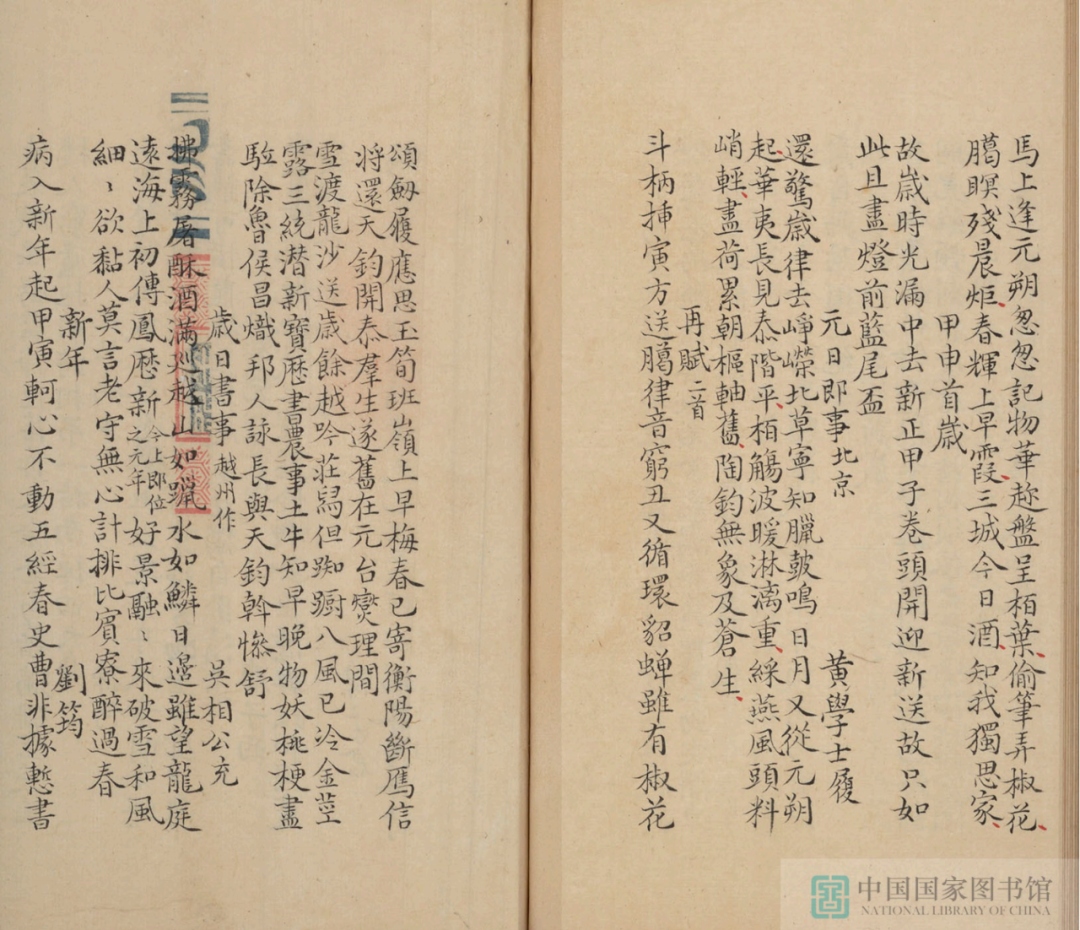 馬上逢元朔忽忽記物華趂盤呈栢葉偷筆弄椒花
臈暝殘晨炬春輝上早霞三城今日酒知我獨思家
甲申首歲
故歲時光漏中去新正甲子卷頭開迎新送故只如
此且盡燈前藍尾盃
元日即事北京 黃學士履
還驚歲律去崢嶸北草寧知臘皷鳴日月又從元朔
起華夷長見泰階平栢觴波暖淋漓重綵燕風頭料
峭輕盡荷累朝樞軸舊陶鈞無象及蒼生
再賦二首
斗柄揷寅方送臈律音窮丑又循環貂蝉雖有椒花
頌劒履應思玉筍班嶺上早梅春已寄衡陽斷鴈信
將還天鈞開泰羣生遂舊在元台爕理間
雪渡龍沙送歲餘越吟莊舄但踟躕八風已冷金莖
露三統潛新寶厯書農事土牛知早晚物妖桃梗盡
驗除魯侯昌熾邦人詠長與天鈞斡慘舒
歲日書事越州作 吳相公充
拂霧屠酥酒滿巡越山如躐水如鱗日邊雖望龍庭
遠海上初傳鳳厯新今上即位之元年好景融〻來破雪和風
細〻欲黏人莫言老守無心計排比賓寮醉過春
新年 劉筠
病入新年起甲寅軻心不動五經春史曹非據慙書
中国国家图书馆
NATIONAL LIBRARY OF CHINA